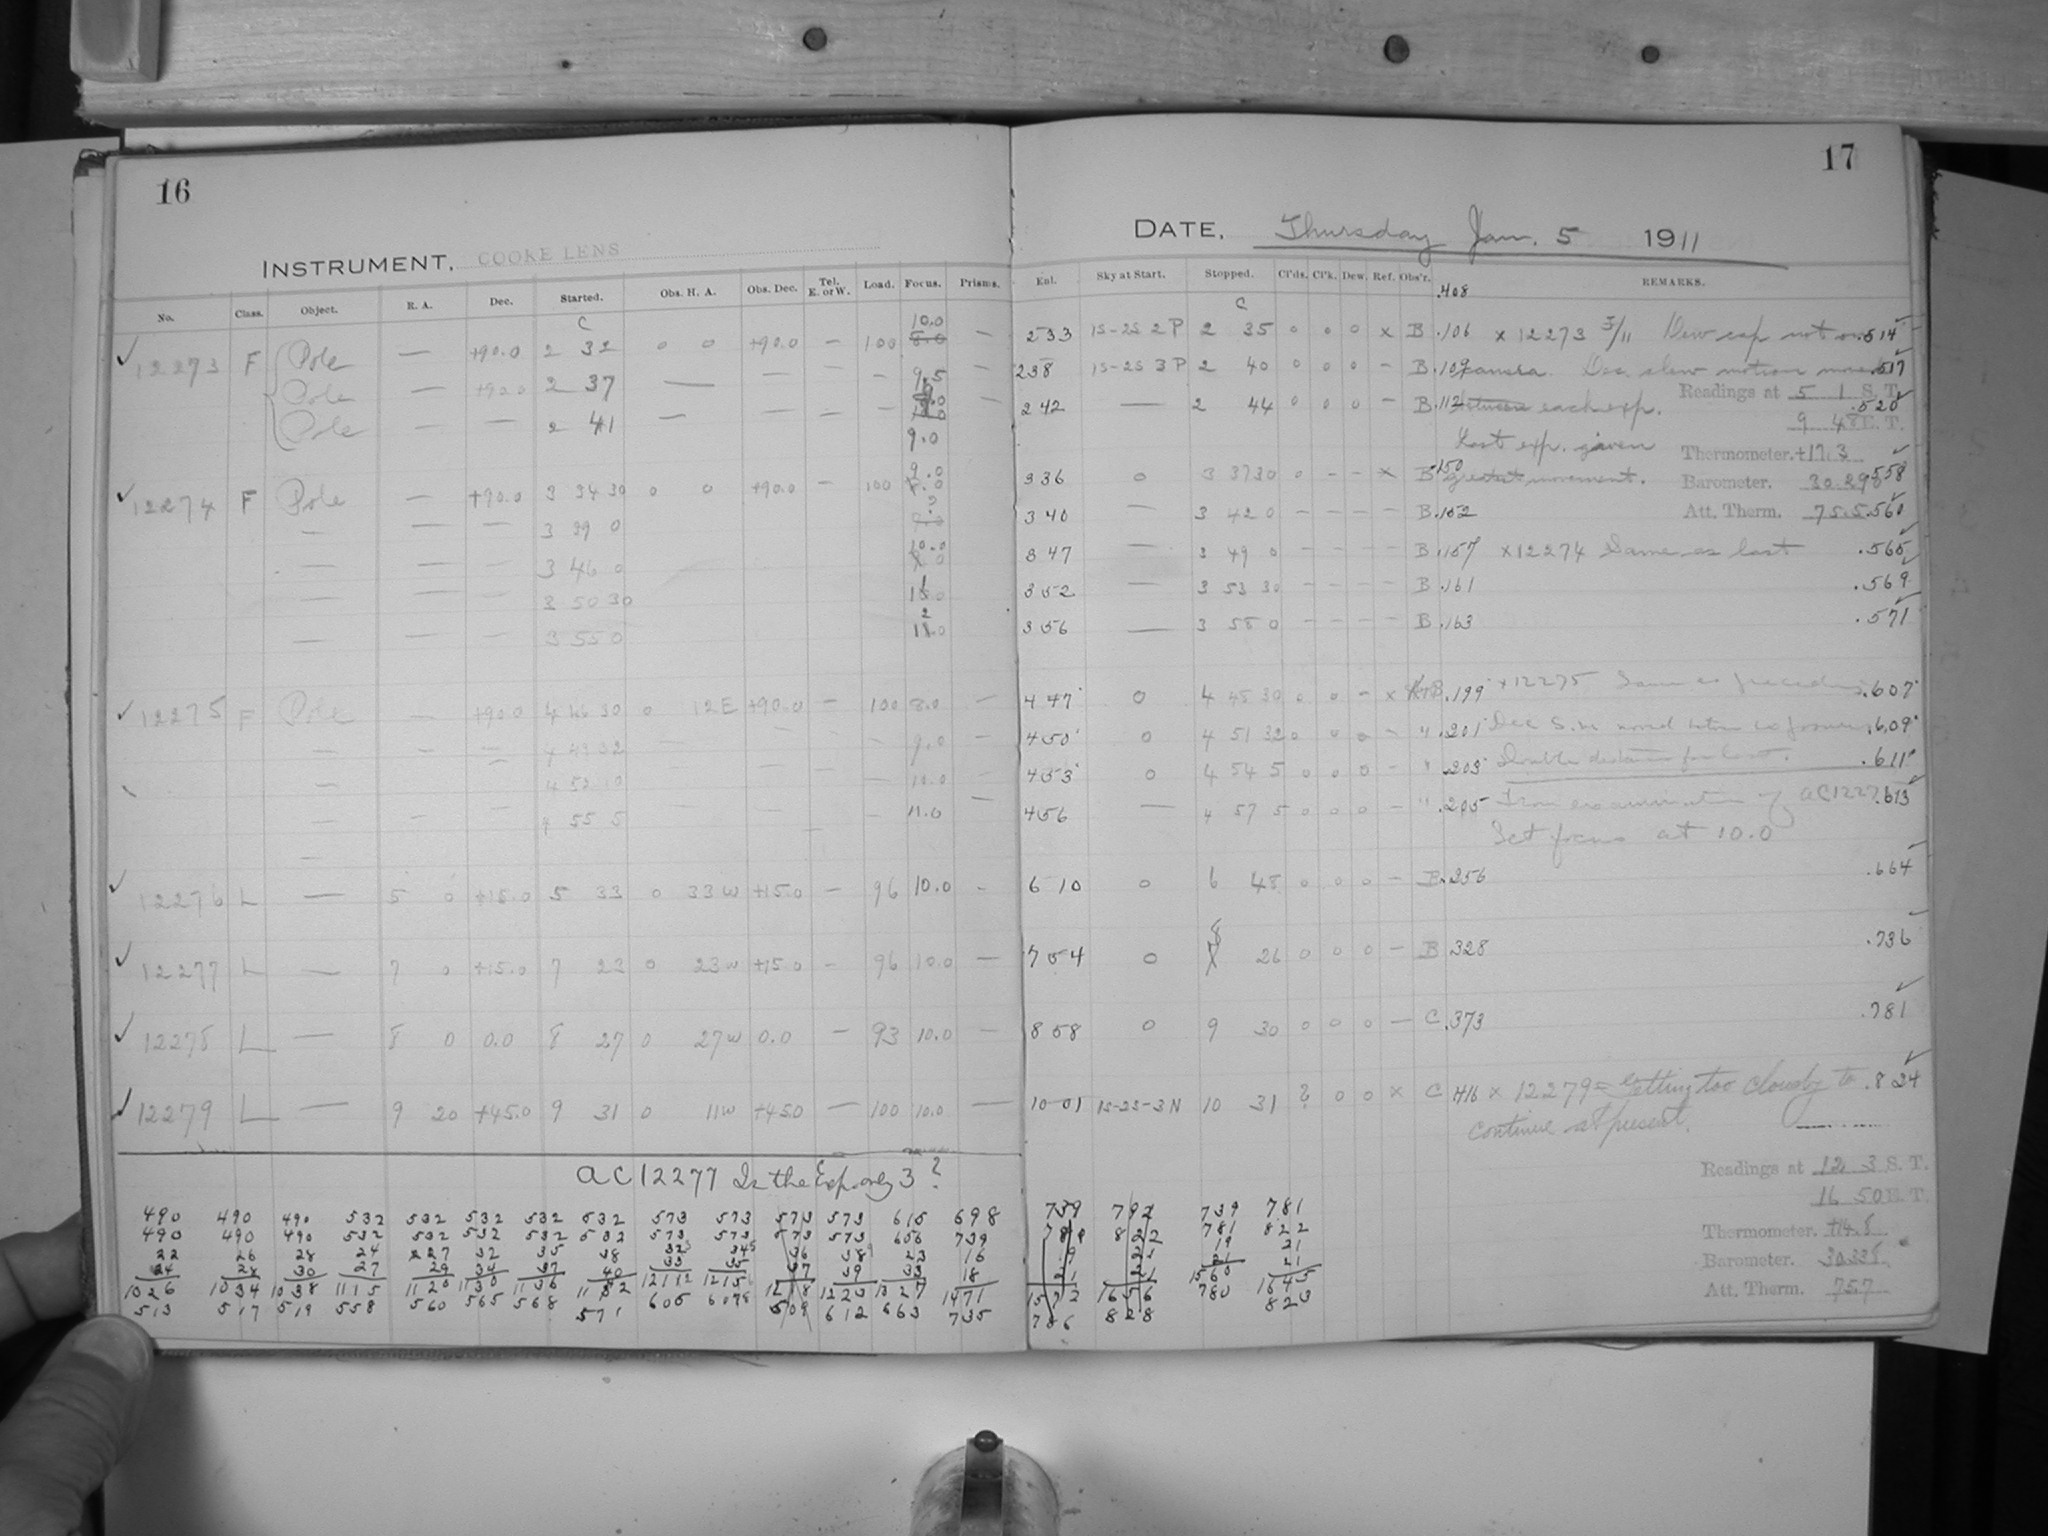 16
INSTRUMENT, COOKE LENS
No. Class. Object. R. A. Dec. Started. Obs. H. A. Obs. Dec. Tel. E. or W. Load. Focus. Prisms.
C
10.0
✓ 12273 F Pole — +90.0 2 32 0 0 +90.0 — 100 8.0 —
Pole — +90.0 2 37 — — — — 9.5 —
Pole — — 2 41 — — — —
9.0
9.0
✓ 12274 F Pole — +90.0 3 34 30 0 0 +90.0 — 100
— — — 3 39 0
10.0
— — — 3 46 0
— — — 3 50 30
— — — 3 55 0
✓ 12275 F Pole — +90.0 4 44 30 0 12 E +90.0 — 100 8.0 —
— — — 4 49 32 9.0
— 10.0
— — 4 55 5 — 11.0
✓ 12276 L — 5 0 +15.0 5 33 0 33 W +15.0 — 96 10.0 —
✓ 12277 L — 7 0 +15.0 7 23 0 23 W +15.0 — 96 10.0 —
✓ 12278 L — 8 0 0.0 8 27 0 27 W 0.0 — 93 10.0 —
✓ 12279 L — 9 20 +45.0 9 31 0 11 W +45.0 — 100 10.0 —
AC12277 Is the Exp. only 3?
490 490 490 532 532 532 532 532 573 573 573 573 615 698
490 490 490 532 532 532 532 532 573 573 573 573 656 739
22 26 28 24 27 32 35 38 36 38 23 16
24 28 30 27 29 34 37 40 33 35 37 39 33 18
1026 1034 1038 1115 1120 1130 1136 1142 1212 1215 1218 1223 1327 1471
513 517 519 558 560 565 568 571 606 609 612 663 735
17
DATE, Thursday Jan. 5 1911
Exl. Sky at Start. Stopped. Cl'ds. Cl'k. Dew. Ref. Obs'r. REMARKS.
.408
C
2 33 1S-2S 2 P 2 35 0 0 0 x B .106 x 12273 Dew cap not on .514
2 38 1S-2S 3 P 2 40 0 0 0 — B .109 camera. Dec. slow motion moved .517
Readings at 5 1 S. T.
2 42 — 2 44 0 0 0 — B .112 between each exp. .520
9 48 E. T.
Last exp. given
Thermometer. +17.3
3 36 0 3 37 30 0 — — x B .150 greatest movement. .558
Barometer. 30.298
3 40 — 3 42 0 — — — — B .152 .560
Att. Therm. 75.5
3 47 — 3 49 0 — — — — B .157 x 12274 Same as last .565
3 52 — 3 53 30 — — — — B .161 .569
3 56 — 3 58 0 — — — — B .163 .571
4 47 0 4 45 30 0 0 — x .199 x 12275 Same as preceding .607
4 50 0 4 51 32 0 0 0 — " .201 .609
4 53 0 4 54 5 0 0 0 — " .203 Double distance for last. .611
4 56 — 4 57 5 0 0 0 — " .205 From examination of AC1227 .613
Set focus at 10.0
6 10 0 6 48 0 0 0 — B .256 .664
8
7 54 0 26 0 0 0 — B .328 .736
8 58 0 9 30 0 0 0 — C .373 .781
10 01 1S-2S-3 N 10 31 ? 0 0 x C .416 x 12279 = Getting too cloudy to .824
continue at present.
Readings at 12 3 S. T.
16 50 E. T.
Thermometer. +14.8
Barometer. 30.338
Att. Therm. 75.7
739 739 781
822 781 822
19 21
21 21
1656 1560 1645
786 828 780 823